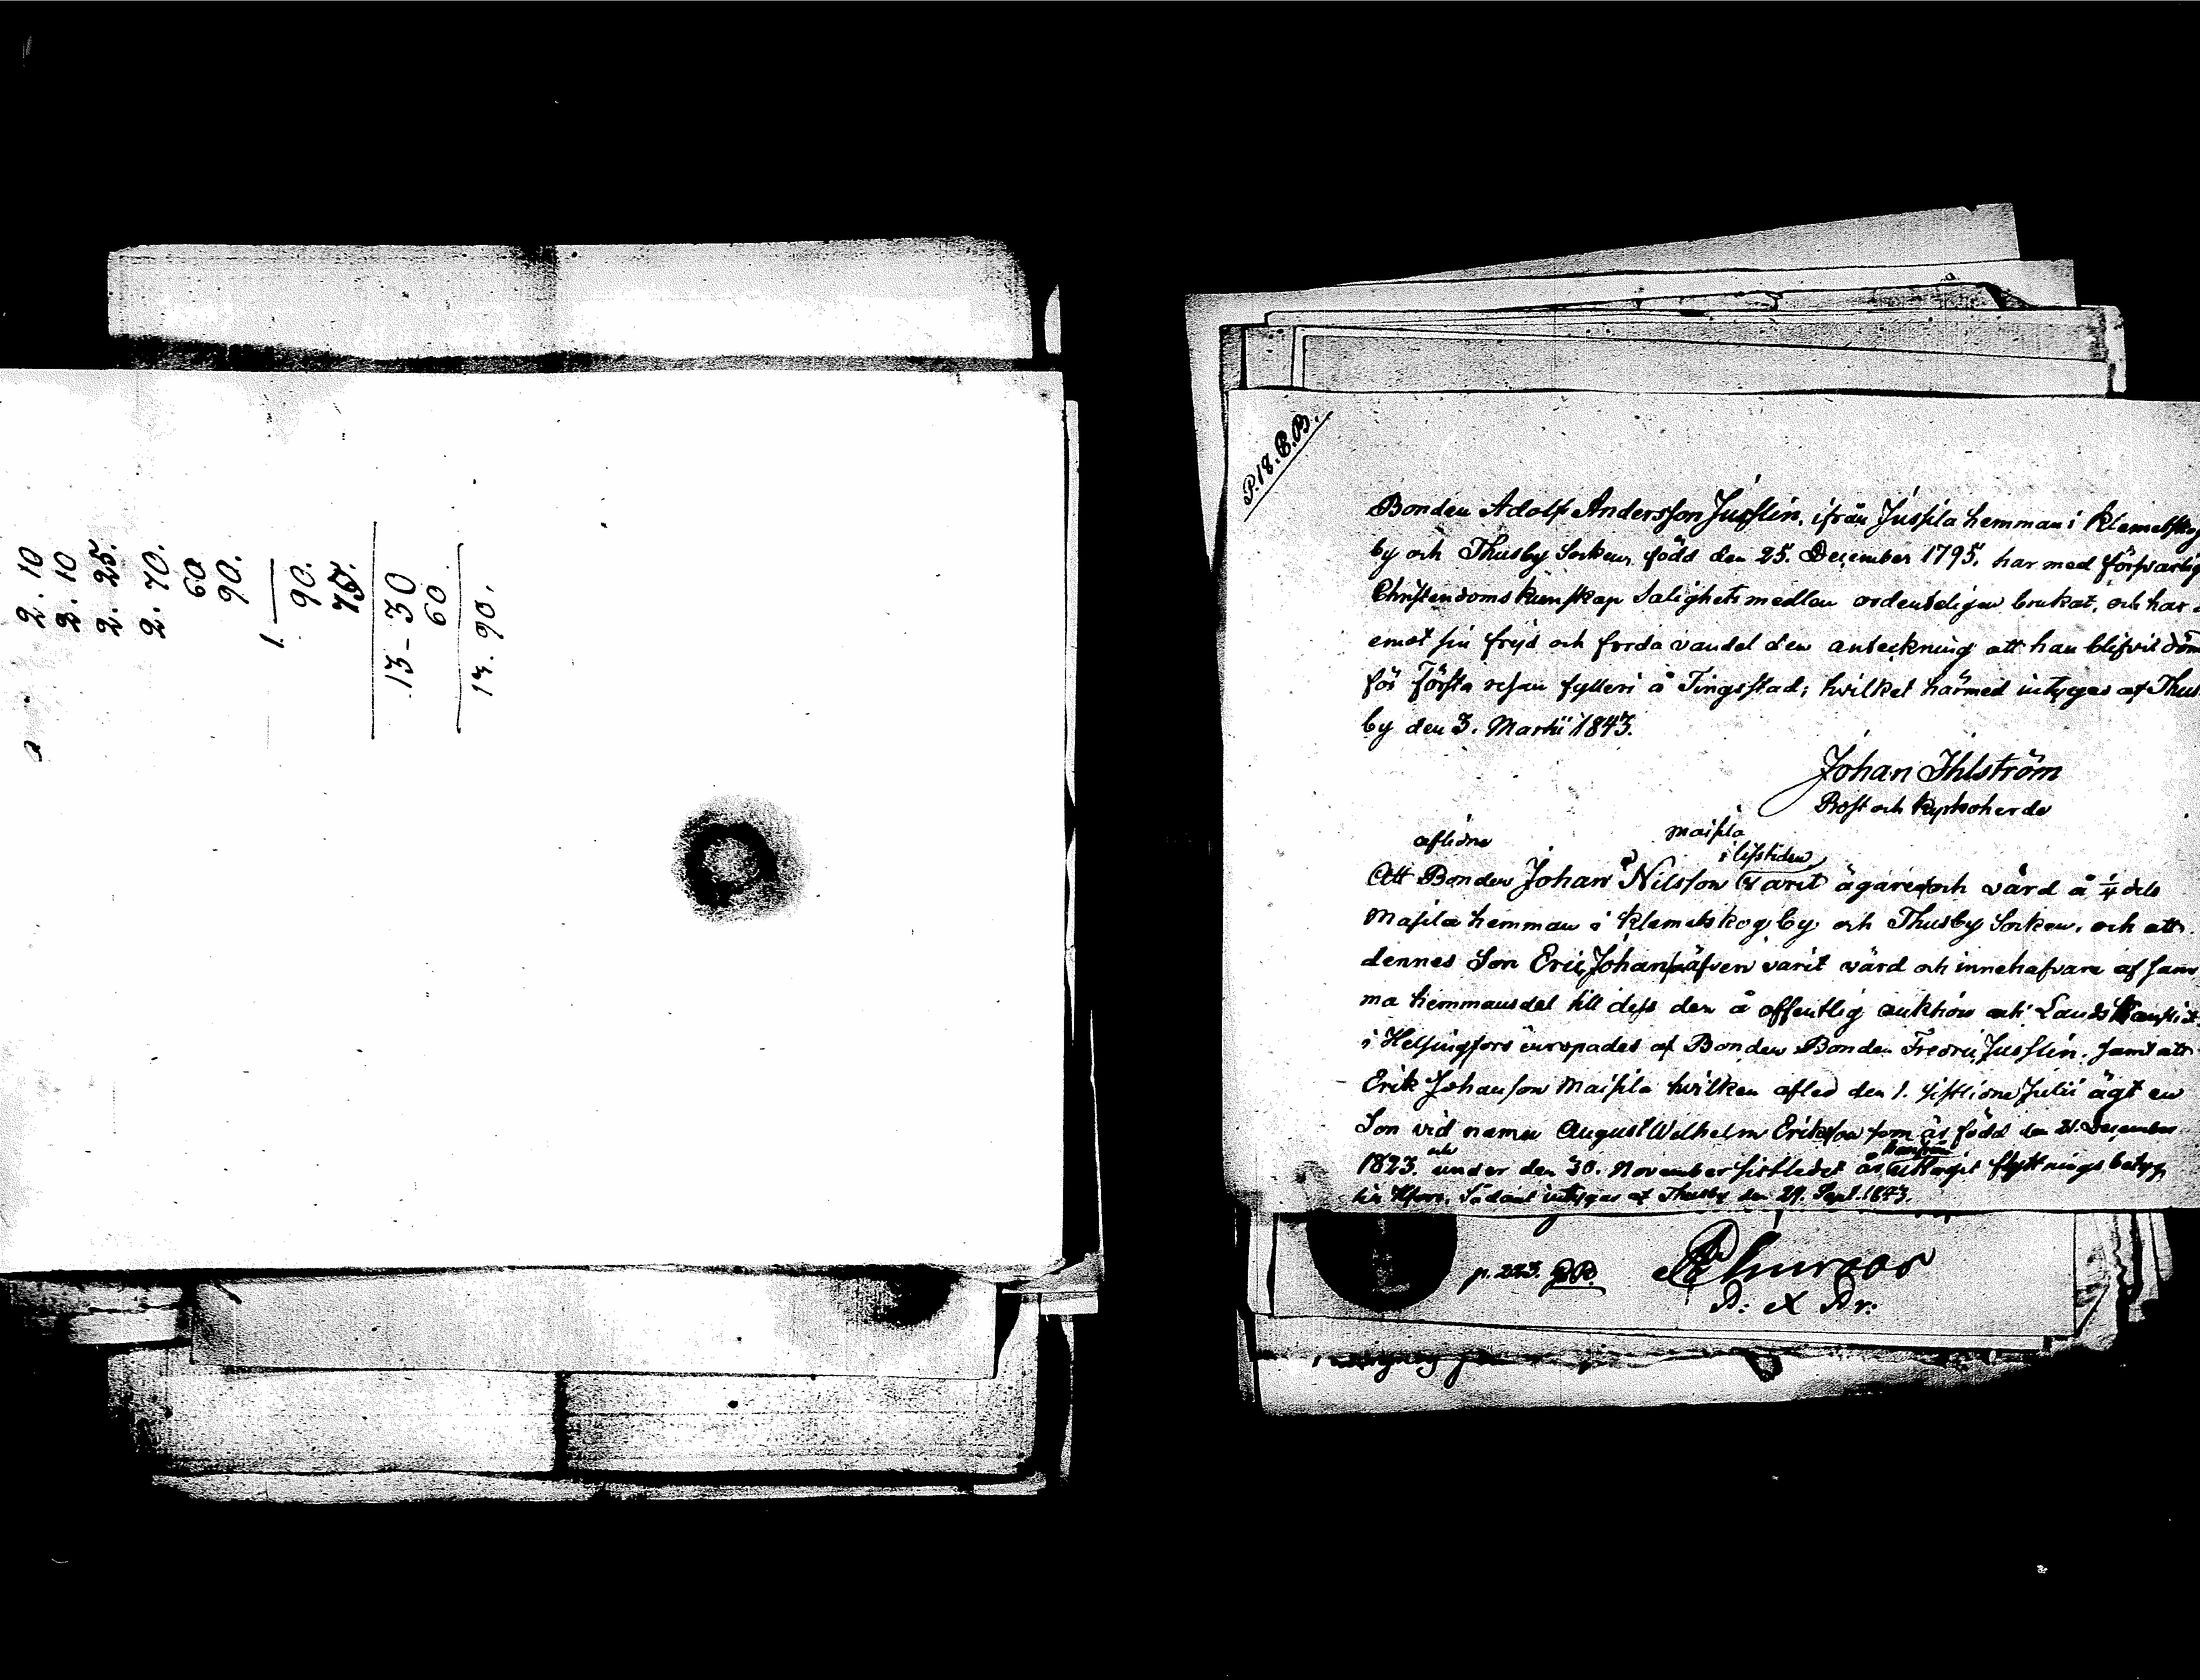 2. 10
2. 10
2. 25.
2. 70.
60
90.
1. —
90.
75.
13 - 30
60.
13. 90.
P. 18. B.B.
Bonden Adolf Andersson Jusslin, ifrån Jussila hemman i Klemetskog
by och Thusby Socken, född den 25. December 1795, har med försvarlig
Christendoms kunskap Salighetsmedlen ordenteligen brukat, och har
emot sin frejd och förda vandel den anteckning att han blifvit döm
för första resan fylleri å Tingsstad; hvilket härmed intygas af Thus
by den 3. Martii 1843.
Johan Ihlström
Prost och Kyrkoherde
aflidne Maisila
i lifstiden
Att Bonden Johan Nilsson varit ägare och värd å 1/4 dels
Masila hemman i Klemetskog by och Thusby Socken, och att
dennes Son Eric Johans: äfven varit värd och innehafvare af sam
ma hemmansdel till dess den å offentlig auktion uti Lands Kansliet
i Helsingfors inropades af Bonden Bonden Fredric Jusslin, samt att
Erik Johansson Maisila hvilken afled den 1. sistlidne Julii ägt en
Son vid namn August Wilhelm Eriksson som är född den 21. December
1823. under den 30. November sistledet år uttagit flyttningsbetyg
till Hfors. Sådant intygas af Thusby den 29. Sept. 1843.
p. 223. B.B.